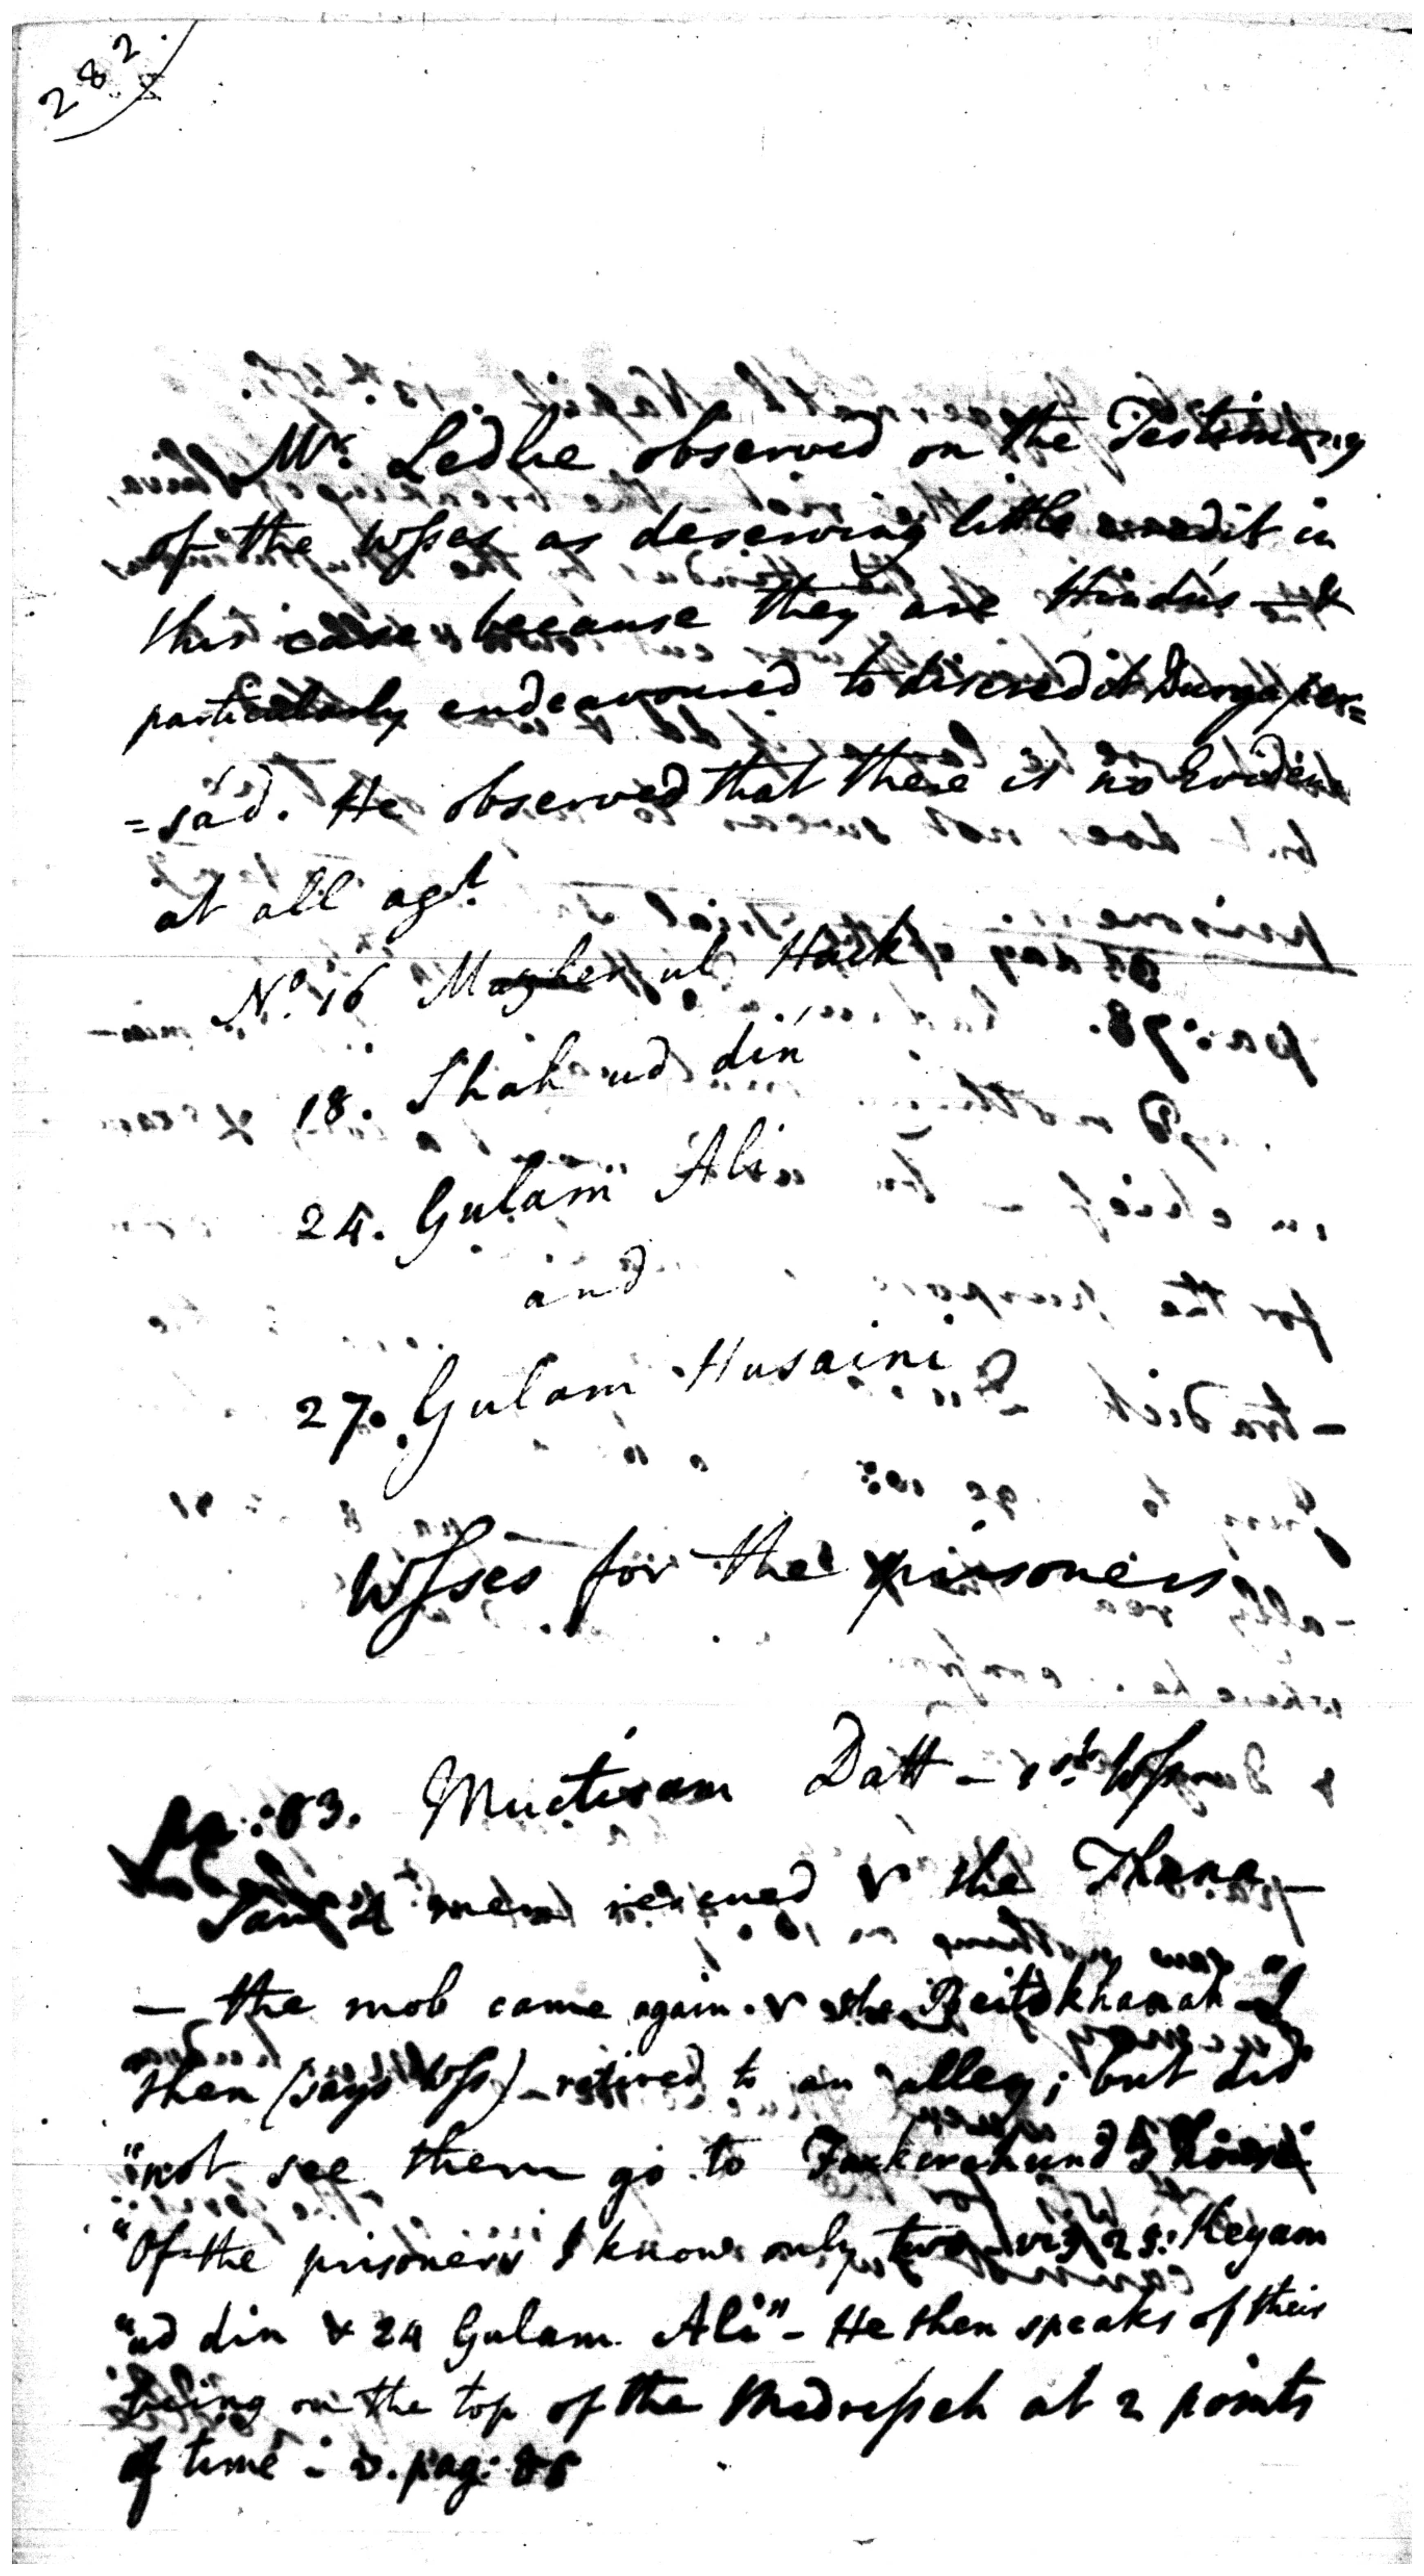 282.
Mr. Ledlie observed on the Testimony
of the Wsses as deserving little credit in
this case because they are Hindús &
particularly endeavoured to discredit Durgaper=
=sád. He observed that there is no Evidence
at all agt.
No. 16 Mazher ul Hack
18. Shah ud dín
24. Gulam Ali
and
27. Gulam Husaini
Wsses for the prisoners
pa: 83. Muctiram Datt - 1st. Wss
Same 4 men rescued the Thana -
- the mob came again. the Beitakhanah - "I
then (says Wss) - retired to an alley; but did
"not see them go to
"Of the prisoners I know only two viz 23. Keyam
"ud din & 24 Gulam Ali" - He then speaks of their
being on the top of the Madresseh at 2 points
of time - v. pag: 85